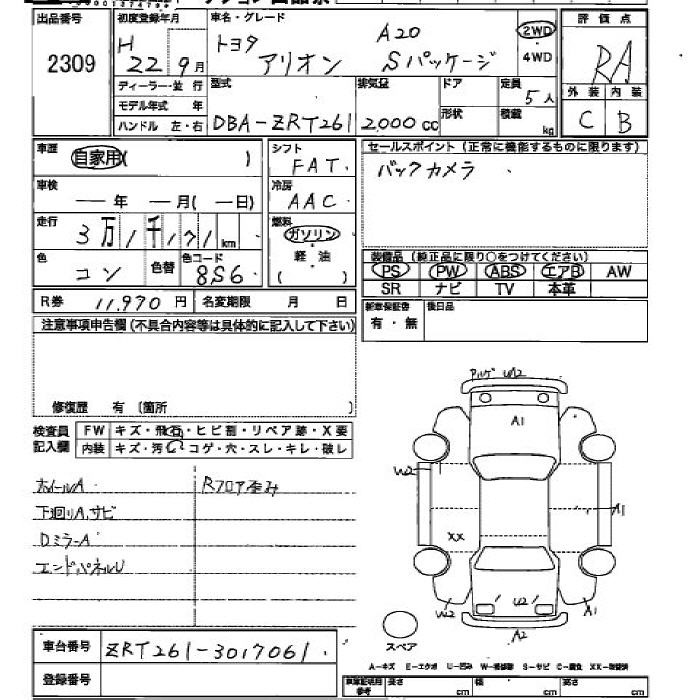 出品番号
2309
初度登録年月
H 22 9月
ディーラー・並 行
モデル年式 年
ハンドル 左・右
車名・グレード
トヨタ A20
アリオン Sパッケージ
2WD
4WD
型式
DBA-ZRT261
排気量
2000cc
ドア
形状
定員
5人
積載
kg
評価点
RA
外装 内装
C B
車歴
自家用( )
車検
—年 —月(—日)
走行
3万1千171km
色
コン
色替
色コード
8S6
シフト
FAT
冷房
AAC
燃料
ガソリン
・
軽油
( )
R券 11,970円 名変期限 月 日
セールスポイント(正常に機能するものに限ります)
バックカメラ
装備品(純正品に限り○をつけてください)
PS PW ABS エアB AW
SR ナビ TV 本革
新車保証書
有・無
後日品
注意事項申告欄(不具合内容等は具体的に記入して下さい)
修復歴 有(箇所 )
検査員
記入欄
FW キズ・飛石・ヒビ割・リペア跡・X要
内装 キズ・汚・コゲ・穴・スレ・キレ・破レ
ホイールA
下廻りA,サビ
DミラーA
エンドパネルU
Rフロア歪み
W2
A1
W2
A1
XX
W2
U2
A1
A2
スペア
A-キズ E-エクボ U-凹み W-補修跡 S-サビ C-腐食 XX-交換済
車台番号 ZRT261-3017061
登録番号
車庫証明用
参考
長さ cm
幅 cm
高さ cm